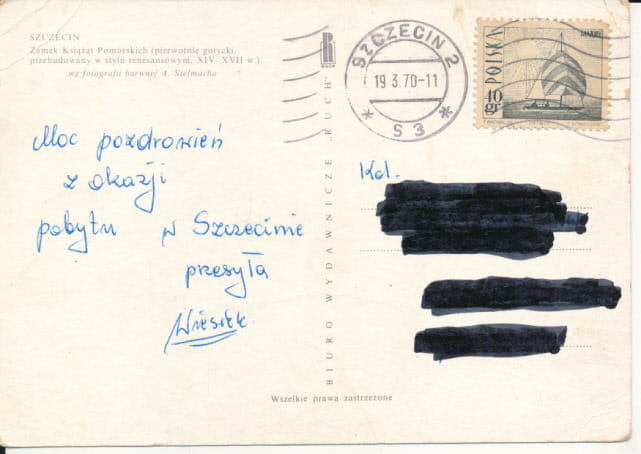 SZCZECIN
Zamek Książąt Pomorskich (pierwotnie gotycki,
przebudowany w stylu renesansowym, XIV-XVII w.)
wg fotografii barwnej A. Stelmacha
Moc pozdrowień
z okazji
pobytu w Szczecinie
przesyła
Wiesiek
BIURO WYDAWNICZE „RUCH”
RUCH
SZCZECIN 2
19.3.70-11
* S3 *
POLSKA
40 gr
Kol.
Wszelkie prawa zastrzeżone